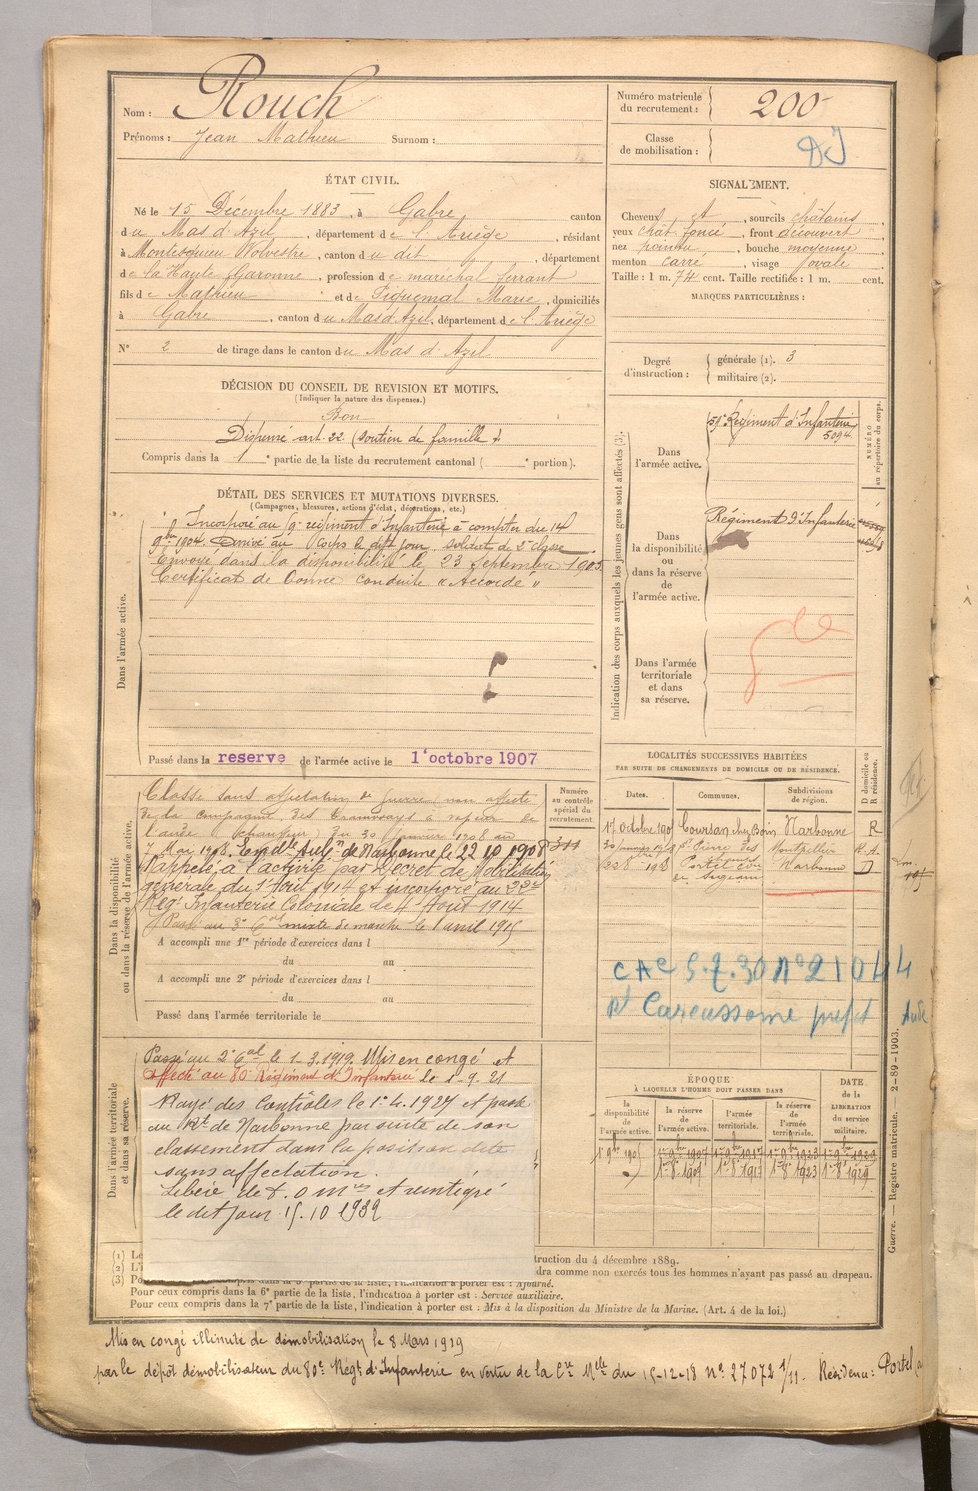 Nom : Rouch
Prénoms : Jean Mathieu Surnom :
Numéro matricule du recrutement : 200
Classe de mobilisation :
ÉTAT CIVIL.
Né le 15 Décembre 1883, à Gabre, canton
du Mas d'Azil, département de l'Ariège, résidant
à Montesquieu Volvestre, canton du dit, département
de la Haute Garonne, profession de maréchal ferrant
fils de Mathieu et de Piquemal Marie, domiciliés
à Gabre, canton du Mas d'Azil, département de l'Ariège
N° 2 de tirage dans le canton du Mas d'Azil
SIGNALEMENT.
Cheveux et, sourcils châtains
yeux chât. foncé, front découvert
nez pointu, bouche moyenne
menton carré, visage ovale
Taille : 1 m. 74 cent. Taille rectifiée : 1 m. cent.
MARQUES PARTICULIÈRES :
Degré d'instruction : générale (1). 3
militaire (2).
DÉCISION DU CONSEIL DE REVISION ET MOTIFS.
(Indiquer la nature des dispenses.)
Bon
Dispensé art. 22 (soutien de famille).
Compris dans la 1 e partie de la liste du recrutement cantonal ( e portion).
DÉTAIL DES SERVICES ET MUTATIONS DIVERSES.
(Campagnes, blessures, actions d'éclat, décorations, etc.)
Dans l'armée active.
Incorporé au régiment d'Infanterie à compter du 14
9bre 1904. Arrivé au Corps le dit jour, soldat de 2e classe
Envoyé dans la disponibilité le 23 Septembre 1905.
Certificat de bonne conduite "Accordé"
Passé dans la reserve de l'armée active le 1er octobre 1907
Indication des corps auxquels les jeunes gens sont affectés (3).
NUMÉRO au répertoire du corps.
Dans l'armée active.
59e Régiment d'Infanterie
5094
Dans la disponibilité ou dans la réserve de l'armée active.
Régiment d'Infanterie
Dans l'armée territoriale et dans sa réserve.
Dans la disponibilité ou dans la réserve de l'armée active.
Numéro au contrôle spécial du recrutement
Classé sans affectation de guerre (non affecté)
de la compagnie des Tramways à vapeur de
l'aude (Chauffeur) du 30 Janvier 1908 au
7 Mai 1908. de Narbonne le 22.10.1908
Rappelé à l'activité par Décret de Mobilisation
générale du 1 Août 1914 et incorporé au 22e
Regt Infanterie Coloniale le 4 Août 1914
Passé au 3e Cal mixte de marche le 1 avril 1915
A accompli une 1re période d'exercices dans l
du au
A accompli une 2e période d'exercices dans l
du au
Passé dans l'armée territoriale le
LOCALITÉS SUCCESSIVES HABITÉES
PAR SUITE DE CHANGEMENTS DE DOMICILE OU DE RÉSIDENCE.
Dates. Communes. Subdivisions de région. D domicile ou R résidence.
Coursan chez Narbonne R
Montpellier R.A.
Portel Narbonne D
de Sigean
CAC 5.7.30 N° 21044
Carcassonne préfet Aude
Dans l'armée territoriale et dans sa réserve.
Passé au 2e Cal le 1-3-1919. Mis en congé et
Affecté au 80e Régiment d'Infanterie le 1-9-21
Rayé des Contrôles le 1.4.1927 et passé
au Rt de Narbonne par suite de son
classement dans la position dite
sans affectation.
Libéré de et réintégré
le dit jour 15.10.1932
ÉPOQUE
À LAQUELLE L'HOMME DOIT PASSER DANS
la disponibilité de l'armée active. la réserve de l'armée active. l'armée territoriale. la réserve de l'armée territoriale. DATE de la LIBÉRATION du service militaire.
1 9bre 1905 1 9bre 1907 1 9bre 1917 1 9bre 1923 1 9bre 1929
Guerre. — Registre matricule. 2-89-1903.
(1) Le
(2) L'i
(3) Po
truction du 4 décembre 1889.
dra comme non exercés tous les hommes n'ayant pas passé au drapeau.
partie de la liste, l'indication à porter est : Ajourné.
Pour ceux compris dans la 6e partie de la liste, l'indication à porter est : Service auxiliaire.
Pour ceux compris dans la 7e partie de la liste, l'indication à porter est : Mis à la disposition du Ministre de la Marine. (Art. 4 de la loi.)
Mis en congé illimité de démobilisation le 8 Mars 1919
par le dépôt démobilisateur du 80e Régt d'Infanterie en vertu de la Cre Mlle du 15-12-18 N° 27072 1/11. Résidence : Portel